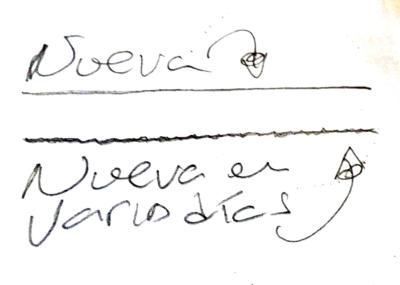 Nueva
Nueva en
varios días